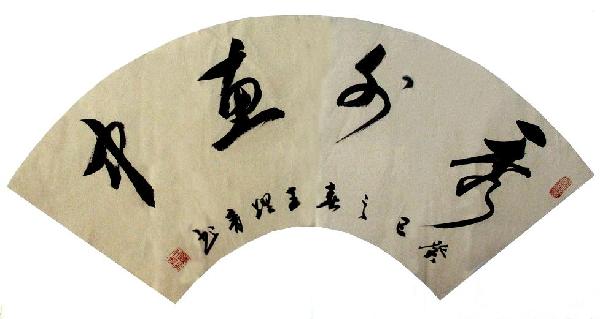 秀外惠中
癸巳之春王书